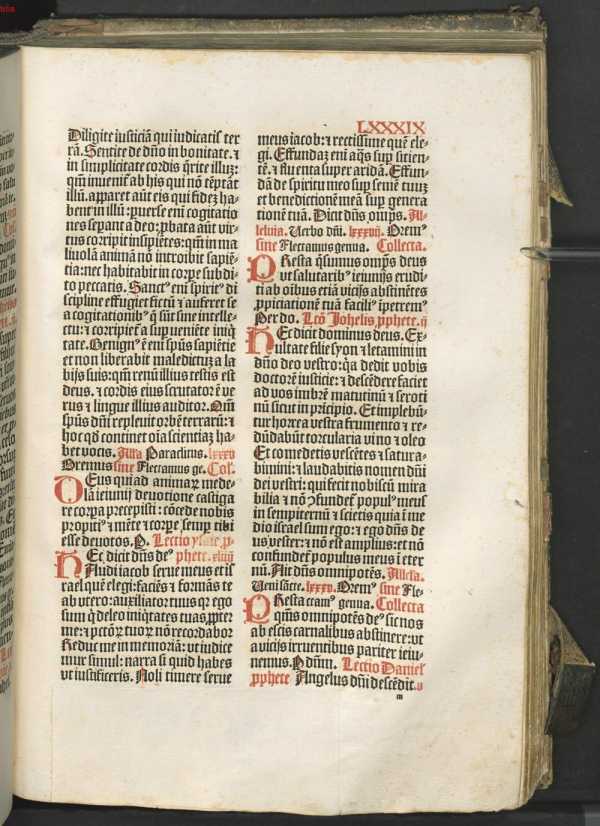 LXXXIX
Diligite iusticiā qui iudicatis ter
rā. Sentite de dño in bonitate. ⁊
in simplicitate cordis q̄rite illuꝫ:
qm̄ inuenit᷑ ab his qui nō tēptāt
illū. apparet aūt eis qui fideꝫ ha-
bent in illū: ꝑuerse eni cogitatio
nes sepant a deo: ꝓbata aūt vir-
tus corripit insipiētes: qm̄ in ma
liuolā animā nō introibit sapiē
tia: nec habitabit in corꝑe subdi-
to peccatis. Sanctꝰ eni spirit᷒ di
scipline effugiet fictū ⁊ auferet se
a cogitationibꝰ q̄ sūt sine intelle-
ctu: ⁊ corripiet᷑ a supueniēte iniq̄
tate. Benignꝰ ē eni spūs sapiētie
et non liberabit maledictuꝫ a la
bijs suis: qm̄ renū illius testis est
deus. ⁊ cordis eius scrutator ē ve
rus ⁊ lingue illius auditor. Qm̄
spūs dñi repleuit orbē terraruꝫ: ⁊
hoc qd continet oīa scientiaꝫ ha-
bet vocis. Alla Paraclitus. lxxxv
Oremus sine Flectamus ge. Col.
DEus qui ad animaꝝ mede-
lā ieiunij deuotione castiga
re corꝑa precepisti: cōcede nobis
propitiꝰ ⁊ mēte ⁊ corꝑe semꝑ tibi
esse deuotos. P. Lectio ysaie ꝓ-
HEc dicit dñs deꝰ phete. xliiij
Audi iacob serue meus et is
rael quē elegi: faciēs ⁊ formās te
ab vtero: auxiliator tuus qꝛ ego
sum q̇ deleo iniq̄tates tuas ꝓpter
me: ⁊ pctōꝝ tuoꝝ nō recordabor
Reduc me in memoriā: vt iudice
mur simul: narra si quid habes
vt iustificeris. Noli timere serue
meus iacob: ⁊ rectissime quē ele-
gi. Effundaꝫ eni aq̄s suꝑ sitien-
tē. ⁊ fluenta super aridā. Effun-
dā de spiritu meo suꝑ semē tuuꝫ
et benedictionē meā suꝑ genera
tionē tuā. Dicit dñs omps. Al-
leluia. Verbo dñi. lxxxvij. Oremꝰ
sine Flectamus genua. Collecta.
PResta q̄sumus omps deus
vt salutaribꝰ ieiunijs erudi
ti ab oībus etiā vicijs abstinētes
ꝓpiciationē tuā faciliꝰ īpetremꝰ
Per do. Lcō Johelis ꝓphete. ij
HEc dicit dominus deus. Ex-
ultate filie syon ⁊ letamini in
dño deo vestro: qꝛ dedit vobis
doctorē iusticie: ⁊ descēdere faciet
ad vos imbrē matutinū ⁊ seroti
nū sicut in prīcipio. Et implebū-
tur horrea vestra frumento ⁊ re-
dūdabūt torcularia vino ⁊ oleo
Et comedetis vescētes ⁊ satura-
bimini: ⁊ laudabitis nomen dñi
dei vestri: qui fecit nobiscū mira
bilia ⁊ nō ꝯfundet᷑ populꝰ meus
in sempiternū ⁊ scietis quia ī me
dio israel sum ego: ⁊ ego dñs de
us vester: ⁊ nō est amplius: et nō
confundet᷑ populus meus ī eter
nū. Ait dñs omnipotēs. Allela.
Veni sācte. lxxxv. Oremꝰ sine Fle-
PResta ctamꝰ genua. Collecta
qs̄ omnipotēs deꝰ sic nos
ab escis carnalibus abstinere: vt
a vicijs irruentibus pariter ieiu-
nemus. P dñm. Lectio Daniel
ꝓphete Angelus dñi descēdit. v
m